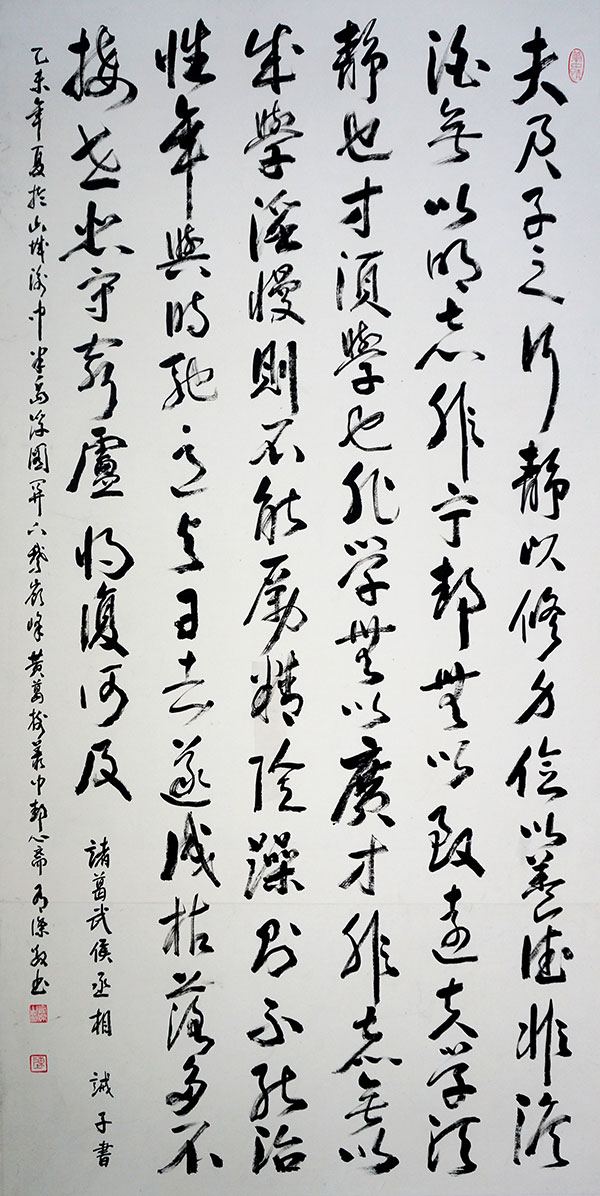 夫君子之行靜以修身儉以養德非澹
泊無以明志非寧靜無以致遠夫學須
靜也才須學也非學無以廣才非志無以
成學淫慢則不能勵精險躁則不能治
性年與時馳意與日去遂成枯落多不
接世悲守窮廬將復何及
諸葛武侯丞相 誡子書
乙未年夏於山城渝中半島鵝嶺峰黃葛樹叢中靜心齋書